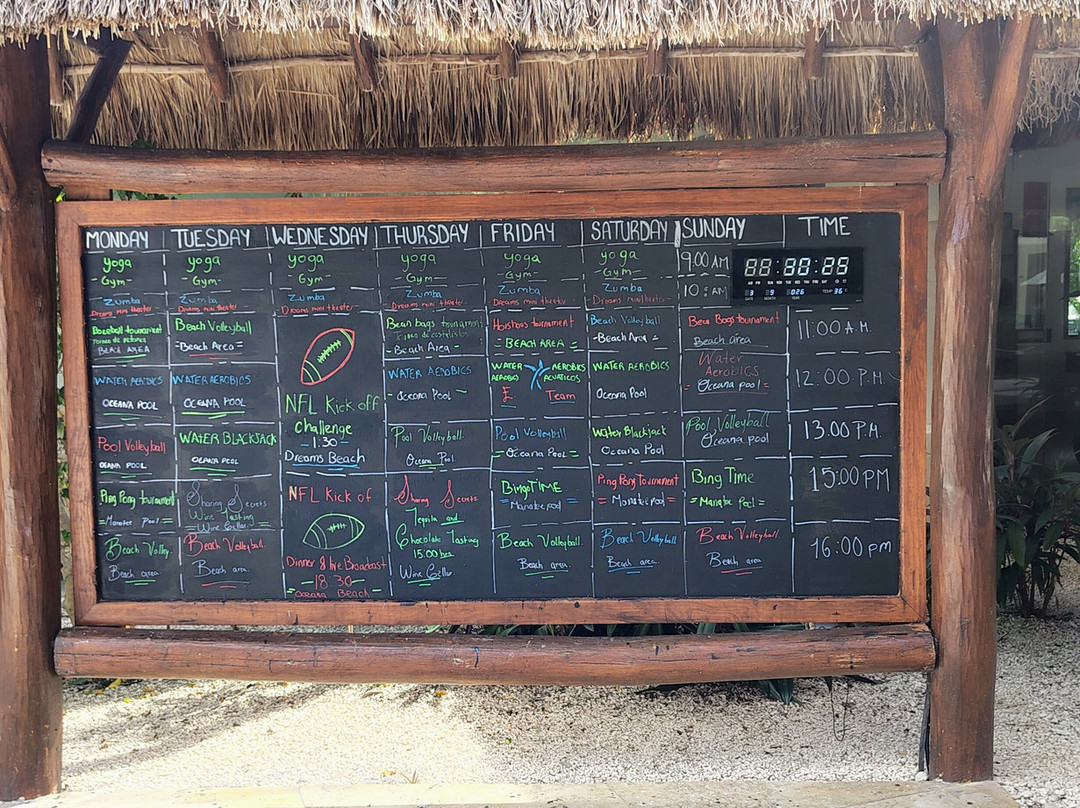 MONDAY TUESDAY WEDNESDAY THURSDAY FRIDAY SATURDAY SUNDAY TIME
yoga yoga yoga yoga yoga yoga 9:00 AM
-Gym- -Gym- -Gym- -Gym- -Gym- -Gym-
Zumba Zumba Zumba Zumba Zumba Zumba 10: AM
Dreams mini theater Dreams mini theater Dreams mini theater Dreams mini theater Dreams mini theater Dreams mini theater
Baseball tournament
BEACH AREA
Beach Volleyball
-Beach Area=
Bean bags tournament
-Beach Area-
tournament
=BEACH AREA=
Beach Volleyball
-Beach Area=
Bean Bags tournament
Beach area
11:00 A.M.
WATER AEROBICS
OCEANA POOL
WATER AEROBICS
OCEANA POOL
NFL Kick off
Challenge
-1:30-
Dreams Beach
WATER AEROBICS
-Oceana Pool
WATER AEROBICS
AEROBICS ACUATICOS
E Team
WATER AEROBICS
Oceana Pool
Water
AEROBICS
=Oceana pool=
12:00 P.M.
Pool Volleyball
OEANA POOL
WATER BLACKJACK
OCEANA POOL
Pool Volleyball
Oceana Pool
Pool Volleyball
=Oceana Pool=
Water Blackjack
Oceana Pool
Pool Volleyball
Oceana pool
13:00 P.M.
Ping Pong tournament
=Manatee Pool=
Sharing Secrets
Wine Tasting
=Wine Cellar=
NFL Kick of
Dinner & live Broadcast
-18:30-
=Oceana Beach-
Sharing Secrets
Tequila and
Chocolate Tasting
15:00 hrs
Wine Cellar
BINGO TIME
=Manatee pool=
Ping Pong Tournament
=Manatee Pool=
Bing Time
=Manatee Pool=
15:00 PM
Beach Volley
Beach area
Beach Volleyball
Beach area
Beach Volleyball
Beach area
Beach Volleyball
Beach area
Beach Volleyball
Beach area
16:00 pm